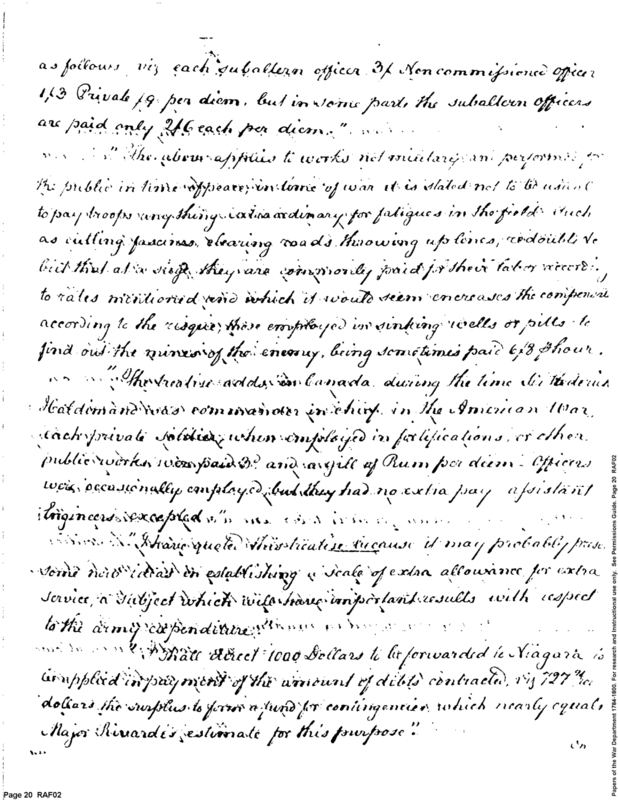 as follows viz each subaltern officer 3/. Noncommissioned officer
1/3 Private /9. per diem, but in some parts the subaltern officers
are paid only 2/6 each per diem."
"The above applies to works not military, and performed for
the public in time of peace, in time of war it is stated not to be usual
to pay troops any thing extraordinary for fatigues in the field such
as cutting fascines, clearing roads, throwing up lines, redoubts &c
but that at a siege they are commonly paid for their labor
to rates mentioned and which it would seem encreases the
according to the risque, those employed in sinking wells or pitts to
find out the mines of the enemy, being sometimes paid 6/8 hour.
"The treatise adds, in Canada during the time Sir Frederick
Haldimand was commander in chief in the American War,
each private soldier, when employed in fortifications, or other
public works was paid and a gill of Rum per diem – Officers
were occasionally employed, but they had no extra pay assistant
Engineers excepted."
"I have quoted this treatise because it may probably
some new ideas in establishing a scale of extra allowance for extra
service, a subject which will have important results with respect
to the army expenditure."
"I shall direct 1000 Dollars to be forwarded to Niagara
applied in payment of the amount of debts contracted, viz 727
dollars the surplus to form a fund for contingencies which nearly equals
Major Rivardi's estimate for this purpose".
Page 20 RAF02
Papers of the War Department 1784-1800. For research and instructional use only. See Permissions Guide. Page 20 RAF02